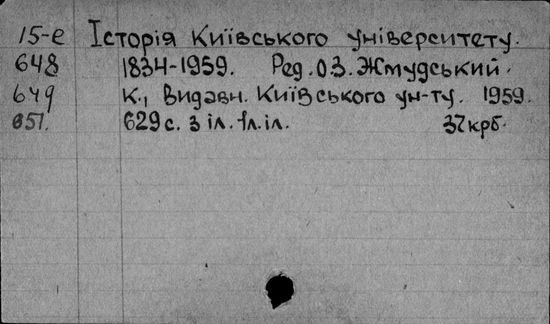 15-е Історія Київського університету.
648 1834-1959. Ред. О.З. Жмудський.
649 К., Видавн. Київського ун-ту. 1959.
651. 629 с. з іл. 1 л. іл. 37 крб.